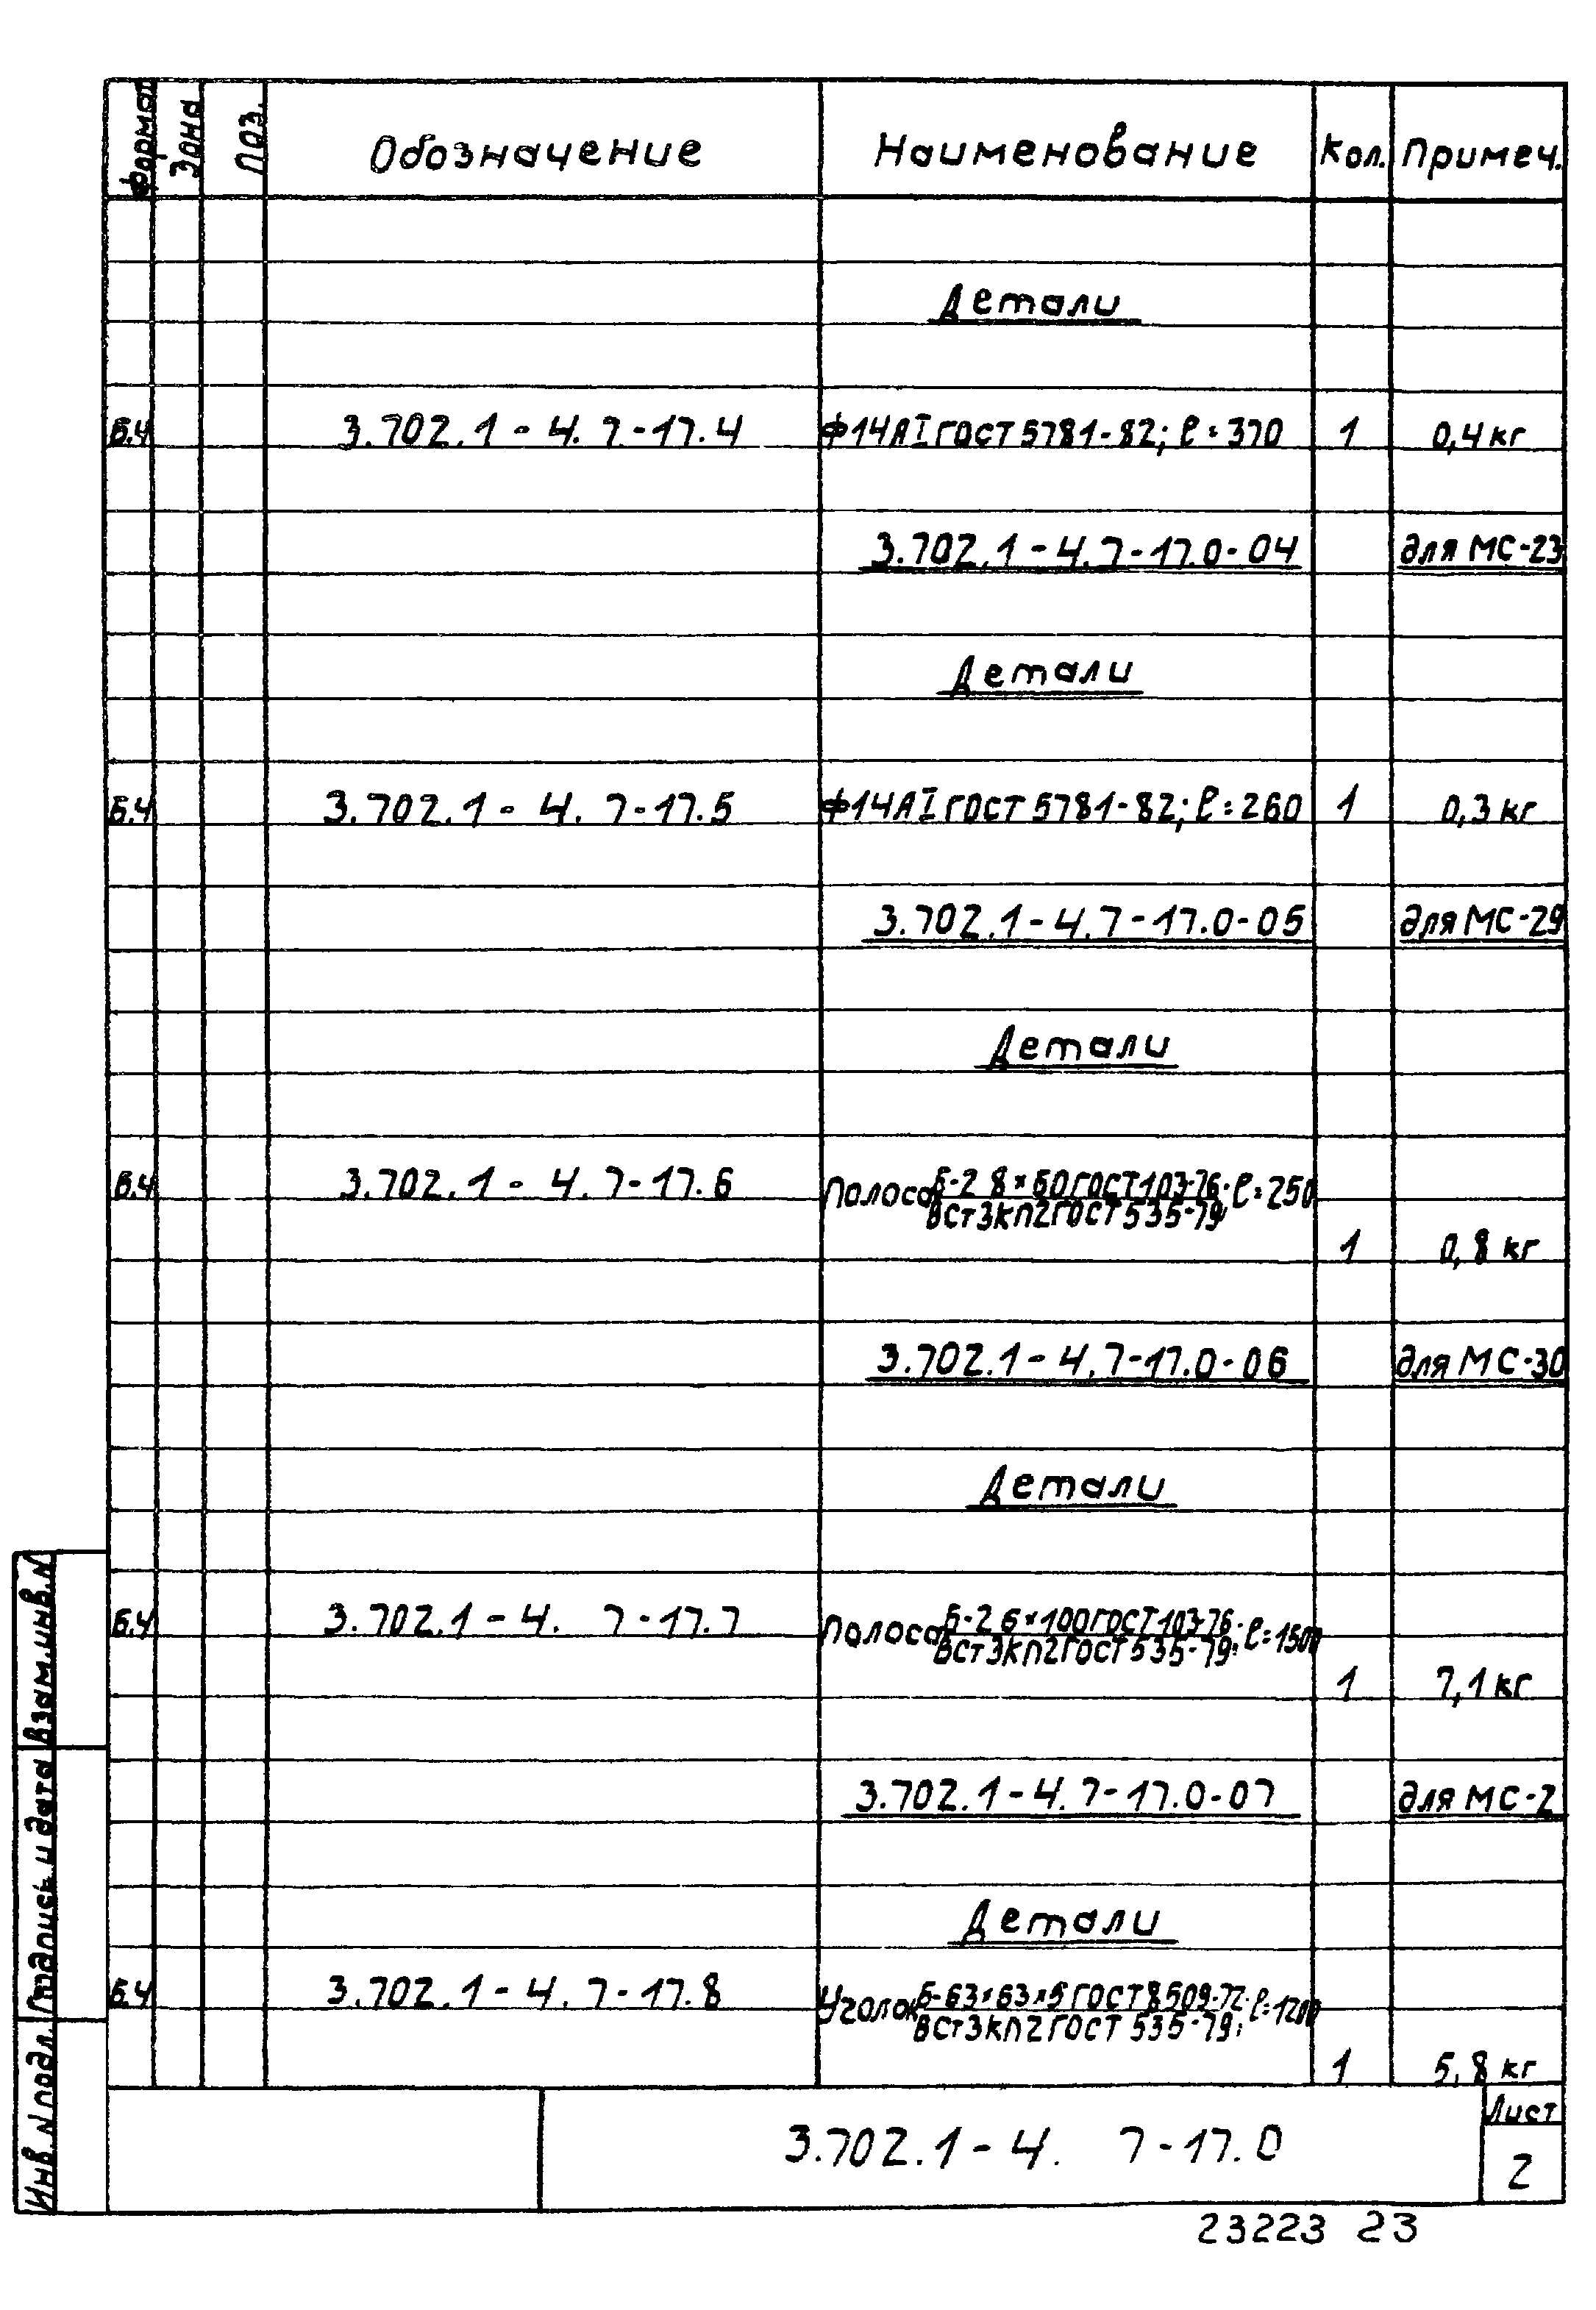 Формат Зона Поз. Обозначение Наименование Кол. Примеч.
Детали
Б.Ч 3.702.1-4.7-17.4 Ф14АI ГОСТ 5781-82; ℓ=370 1 0,4 кг
3.702.1-4.7-17.0-04 для МС-23
Детали
Б.Ч 3.702.1-4.7-17.5 Ф14АI ГОСТ 5781-82; ℓ=260 1 0,3 кг
3.702.1-4.7-17.0-05 для МС-29
Детали
Б.Ч 3.702.1-4.7-17.6 Полоса Б-2 8×50 ГОСТ 103-76; ℓ=250
ВСт3кп2 ГОСТ 535-79
1 0,8 кг
3.702.1-4.7-17.0-06 для МС-30
Детали
Б.Ч 3.702.1-4. 7-17.7 Полоса Б-2 6×100 ГОСТ 103-76; ℓ=1500
ВСт3кп2 ГОСТ 535-79
1 7,1 кг
3.702.1-4.7-17.0-07 для МС-2
Детали
Б.Ч 3.702.1-4.7-17.8 Уголок Б-63×63×5 ГОСТ 8509-72; ℓ=1200
ВСт3кп2 ГОСТ 535-79
1 5,8 кг
3.702.1-4. 7-17.0
Лист
2
Инв. N подл. Подпись и дата Взам. инв. N
23223 23